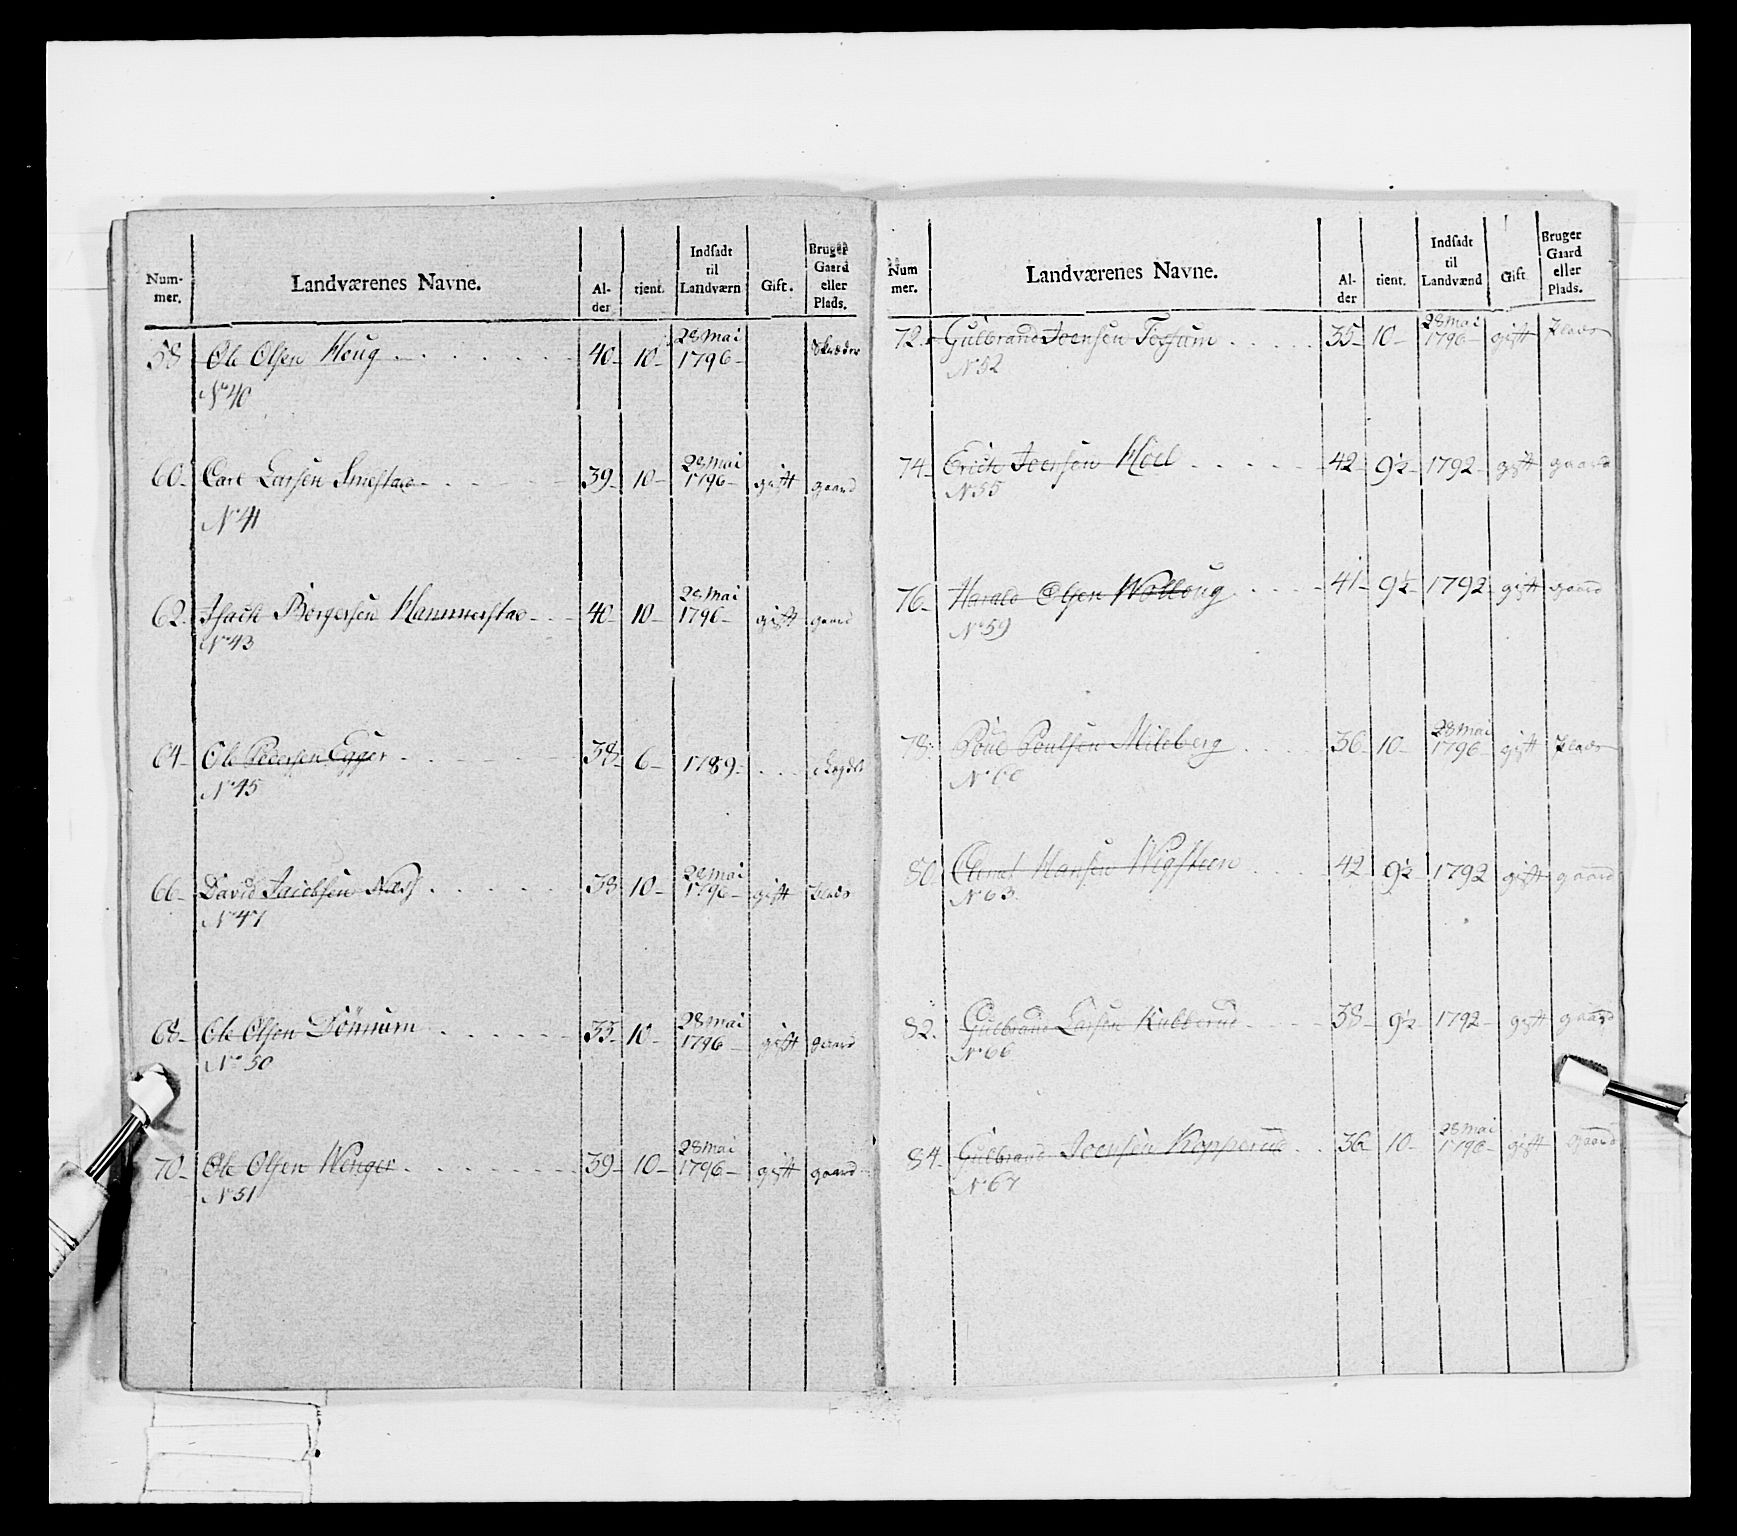 Num-
mer.
Landværenes Navne.
Al-
der
tient.
Indsadt
til
Landværn
Gift.
Bruger
Gaard
eller
Plads.
58 Ole Olsen Houg 40 10 28 Mai 1796 Skræder
No 40
60 Carl Larsen Smestad 39 10 28 Mai 1796 gift gaard
No 41
62 Isach Borgersen Hammerstad 40 10 28 Mai 1796 gift gaard
No 43
64 Ole Pedersen Egger 38 6 1789
No 45
66 David Jacobsen Næss 38 10 28 Mai 1796 gift Plads
No 47
68 Ole Olsen Dönnum 35 10 28 Mai 1796 gift gaard
No 50
70 Ole Olsen Wenger 39 10 28 Mai 1796 gift gaard
No 51
Num
mer.
Landværenes Navne.
Al-
der
tient.
Indsadt
til
Landvænd
Gift
Bruger
Gaard
eller
Plads.
72. Gulbrand Joensen Fossum 35 10 28 Mai 1796 gift Plads
No 52
74 Erich Iversen Hoel 42 9½ 1792 gift gaard
No 55
76 Harald Olsen 41 9½ 1792 gift gaard
No 59
78. Poul Poulsen Mileberg 36 10 28 Mai 1796 gift Plads
No 60
80 Hansen Wigsteen 42 9½ 1792 gift gaard
No 63
82. Gulbrand Larsen Kubberud 38 9½ 1792 gift gaard
No 66
84 Gulbrand Joensen Kopperud 36 10 28 Mai 1796 gift gaard
No 67